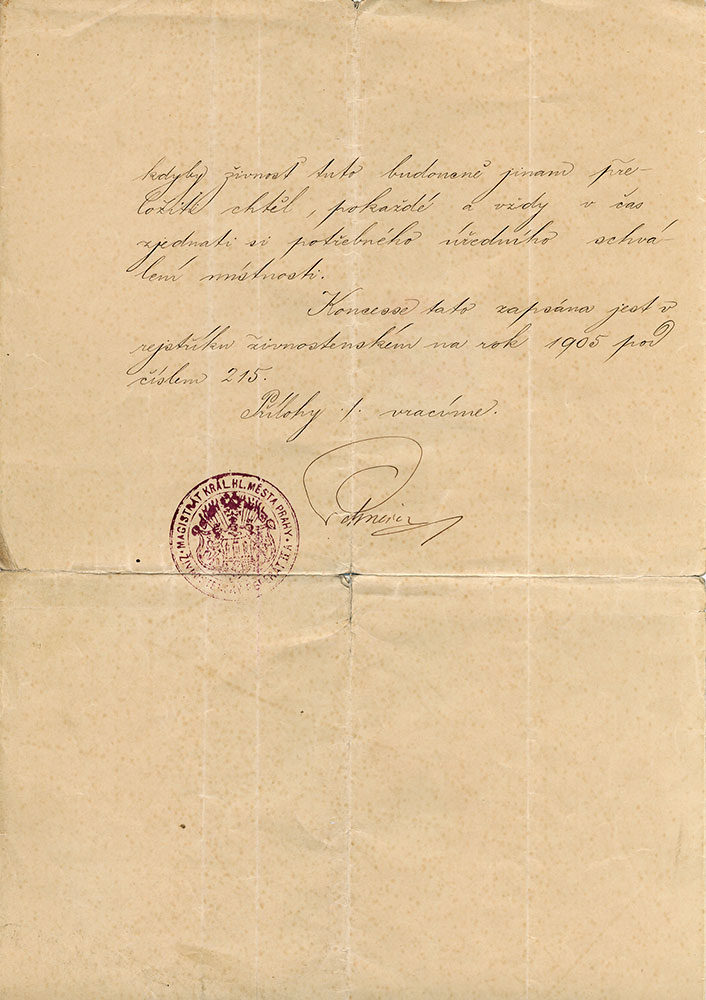 kdyby živnosť tuto budoucně jinam pře-
ložiti chtěl, pokaždé a vždy v čas
zjednati si potřebného úředního schvá-
lení místnosti.
Koncesse tato zapsána jest v
rejstříku živnostenském na rok 1905 pod
číslem 215.
Přílohy ./. vracíme.
MAGISTRÁT KRÁL. HL. MĚSTA PRAHY